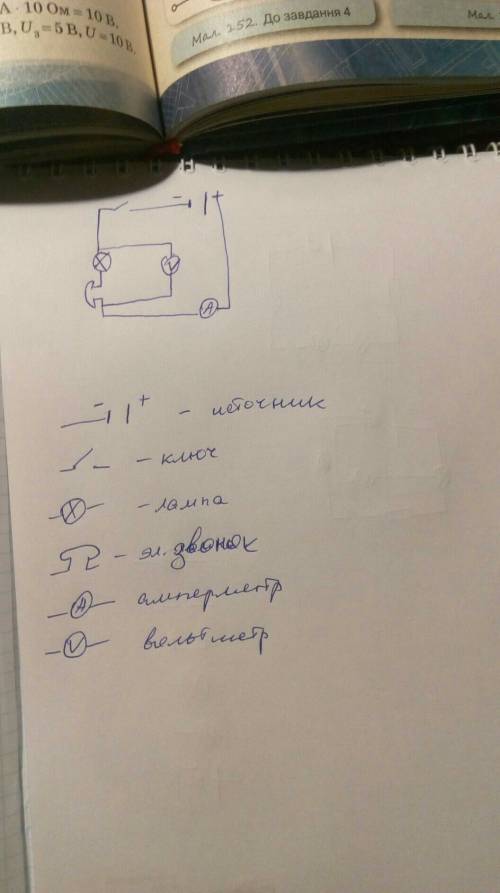 А · 10 Ом = 10 В,
В, U₃ = 5 В, U = 10 В.
Мал. 252. До завдання 4
Мал.
- +
V
A
- + - источник
- ключ
- лампа
- эл. звонок
A - амперметр
V - вольтметр